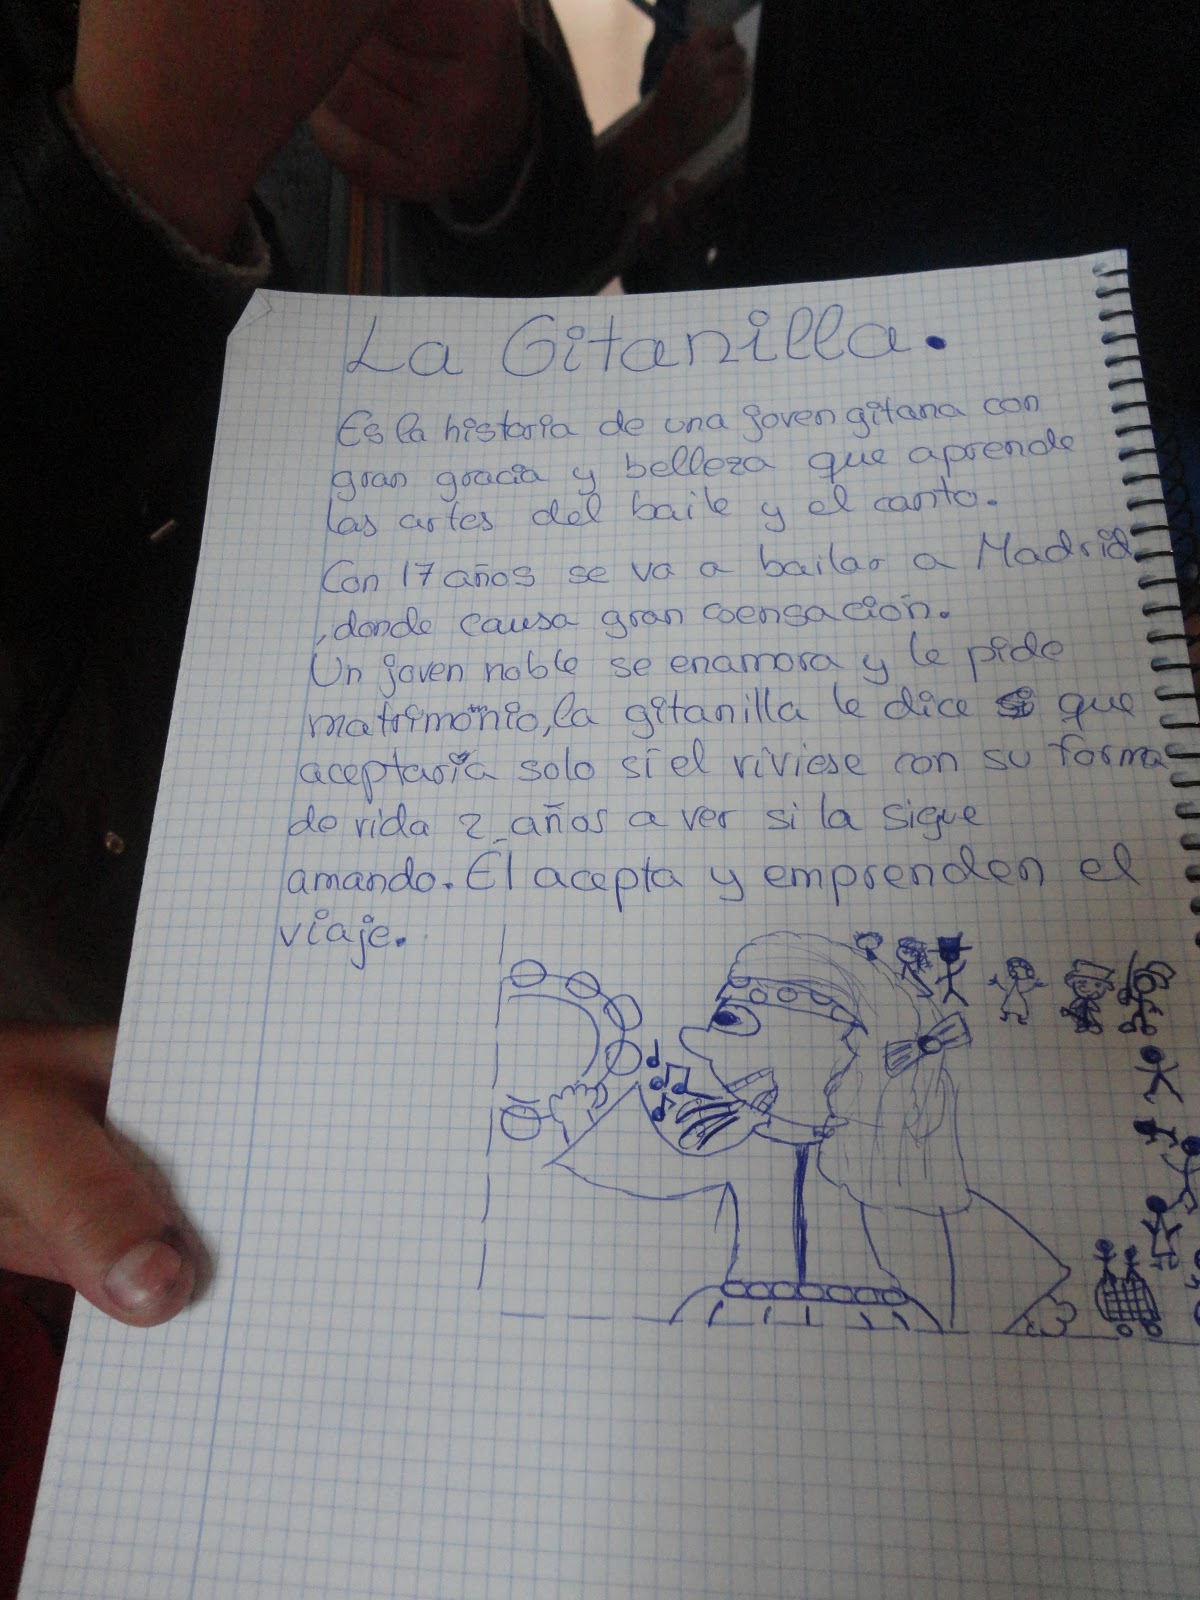 La Gitanilla.
Es la historia de una joven gitana con
gran gracia y belleza que aprende
las artes del baile y el canto.
Con 17 años se va a bailar a Madrid
, donde causa gran censación.
Un joven noble se enamora y le pide
matrimonio, la gitanilla le dice que
aceptaria solo si el viviese con su forma
de vida 2 años a ver si la sigue
amando. Él acepta y emprenden el
viaje.